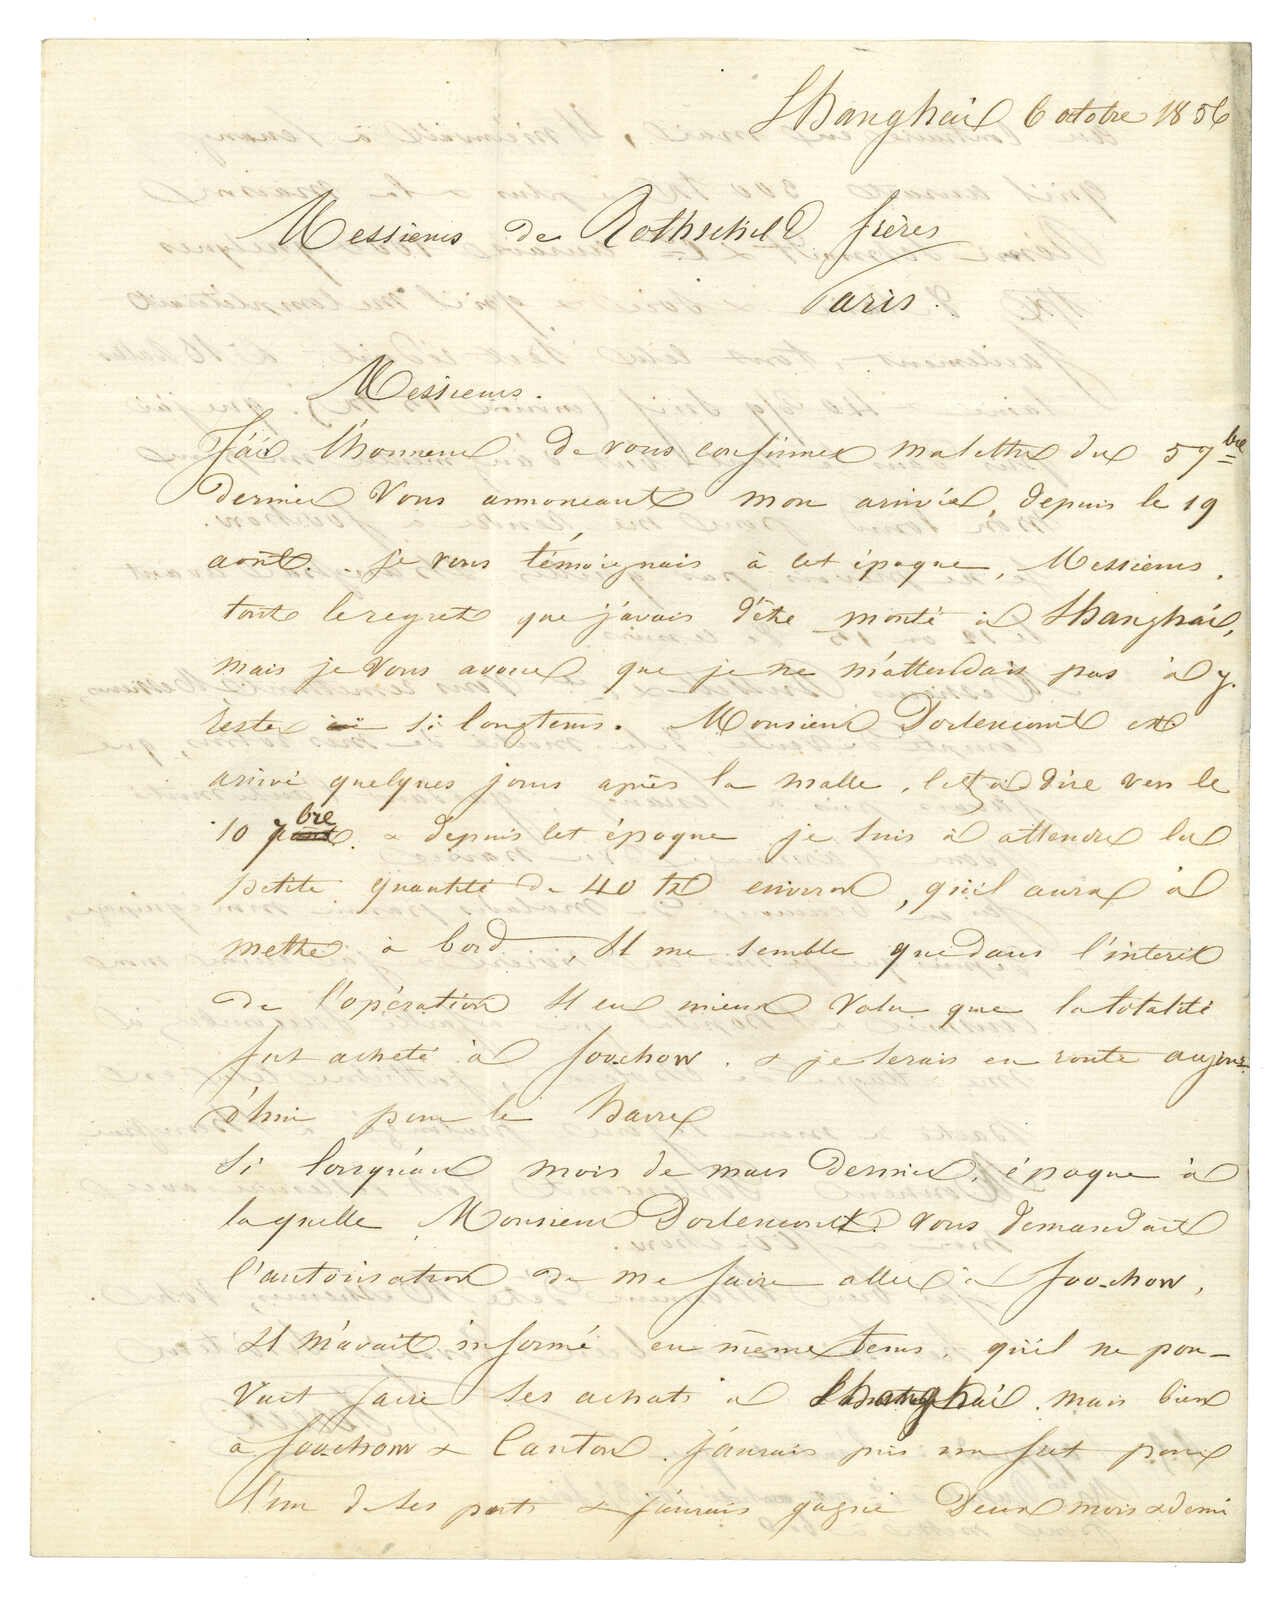 Shanghaï 6 octobre 1856
Messieurs de Rothschild frères
Paris.
Messieurs.
J'ai l'honneur de vous confirmer ma lettre du 5 7bre
dernier vous annonçant mon arrivée, depuis le 19
août. Je vous témoignais à cet époque, Messieurs,
tout le regret que j'avais d'être monté à Shanghaï,
mais je vous avoue que je ne m'attendais pas à y
rester si longtems. Monsieur Dorlencourt est
arrivé quelques jours après la malle, c'est à dire vers le
10 7bre & depuis cet époque je suis à attendre la
petite quantité de 40 tx environ, qu'il aura à
mettre à bord, Il me semble que dans l'interêt
de l'opération Il eu mieux valu que la totalité
fut acheté à Foo-chow. & je serais en route aujour
d'hui pour le havre
Si lorsqu'au mois de mars dernier, époque à
laquelle Monsieur Dorlencourt vous demandait
l'autorisation de me faire aller à Foo-chow,
Il m'avait informé en même tems, qu'il ne pou-
vait faire ses achats à Shanghaï, mais bien
à Foo-chow & Canton, j'aurais pris un fret pour
l'un de ses ports & j'aurais gagné Deux mois & demi